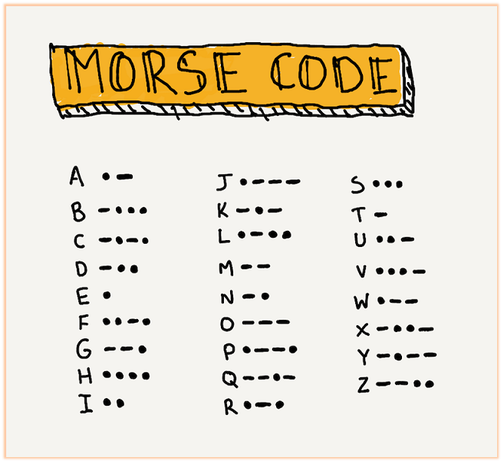 MORSE CODE
A •—
B —•••
C —•—•
D —••
E •
F ••—•
G ——•
H ••••
I ••
J •———
K —•—
L •—••
M ——
N —•
O ———
P •——•
Q ——•—
R •—•
S •••
T —
U ••—
V •••—
W •——
X —••—
Y —•——
Z ——••